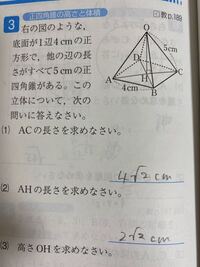 正四角錐の高さと体積
教p.189
3 右の図のような,
底面が1辺4cmの正
方形で,他の辺の長
さがすべて5cmの正
四角錐がある。この
立体について,次の
問いに答えなさい。
O
5cm
D
C
A
H
4cm
B
(1) ACの長さを求めなさい。
4√2 cm
(2) AHの長さを求めなさい。
2√2 cm
(3) 高さOHを求めなさい。